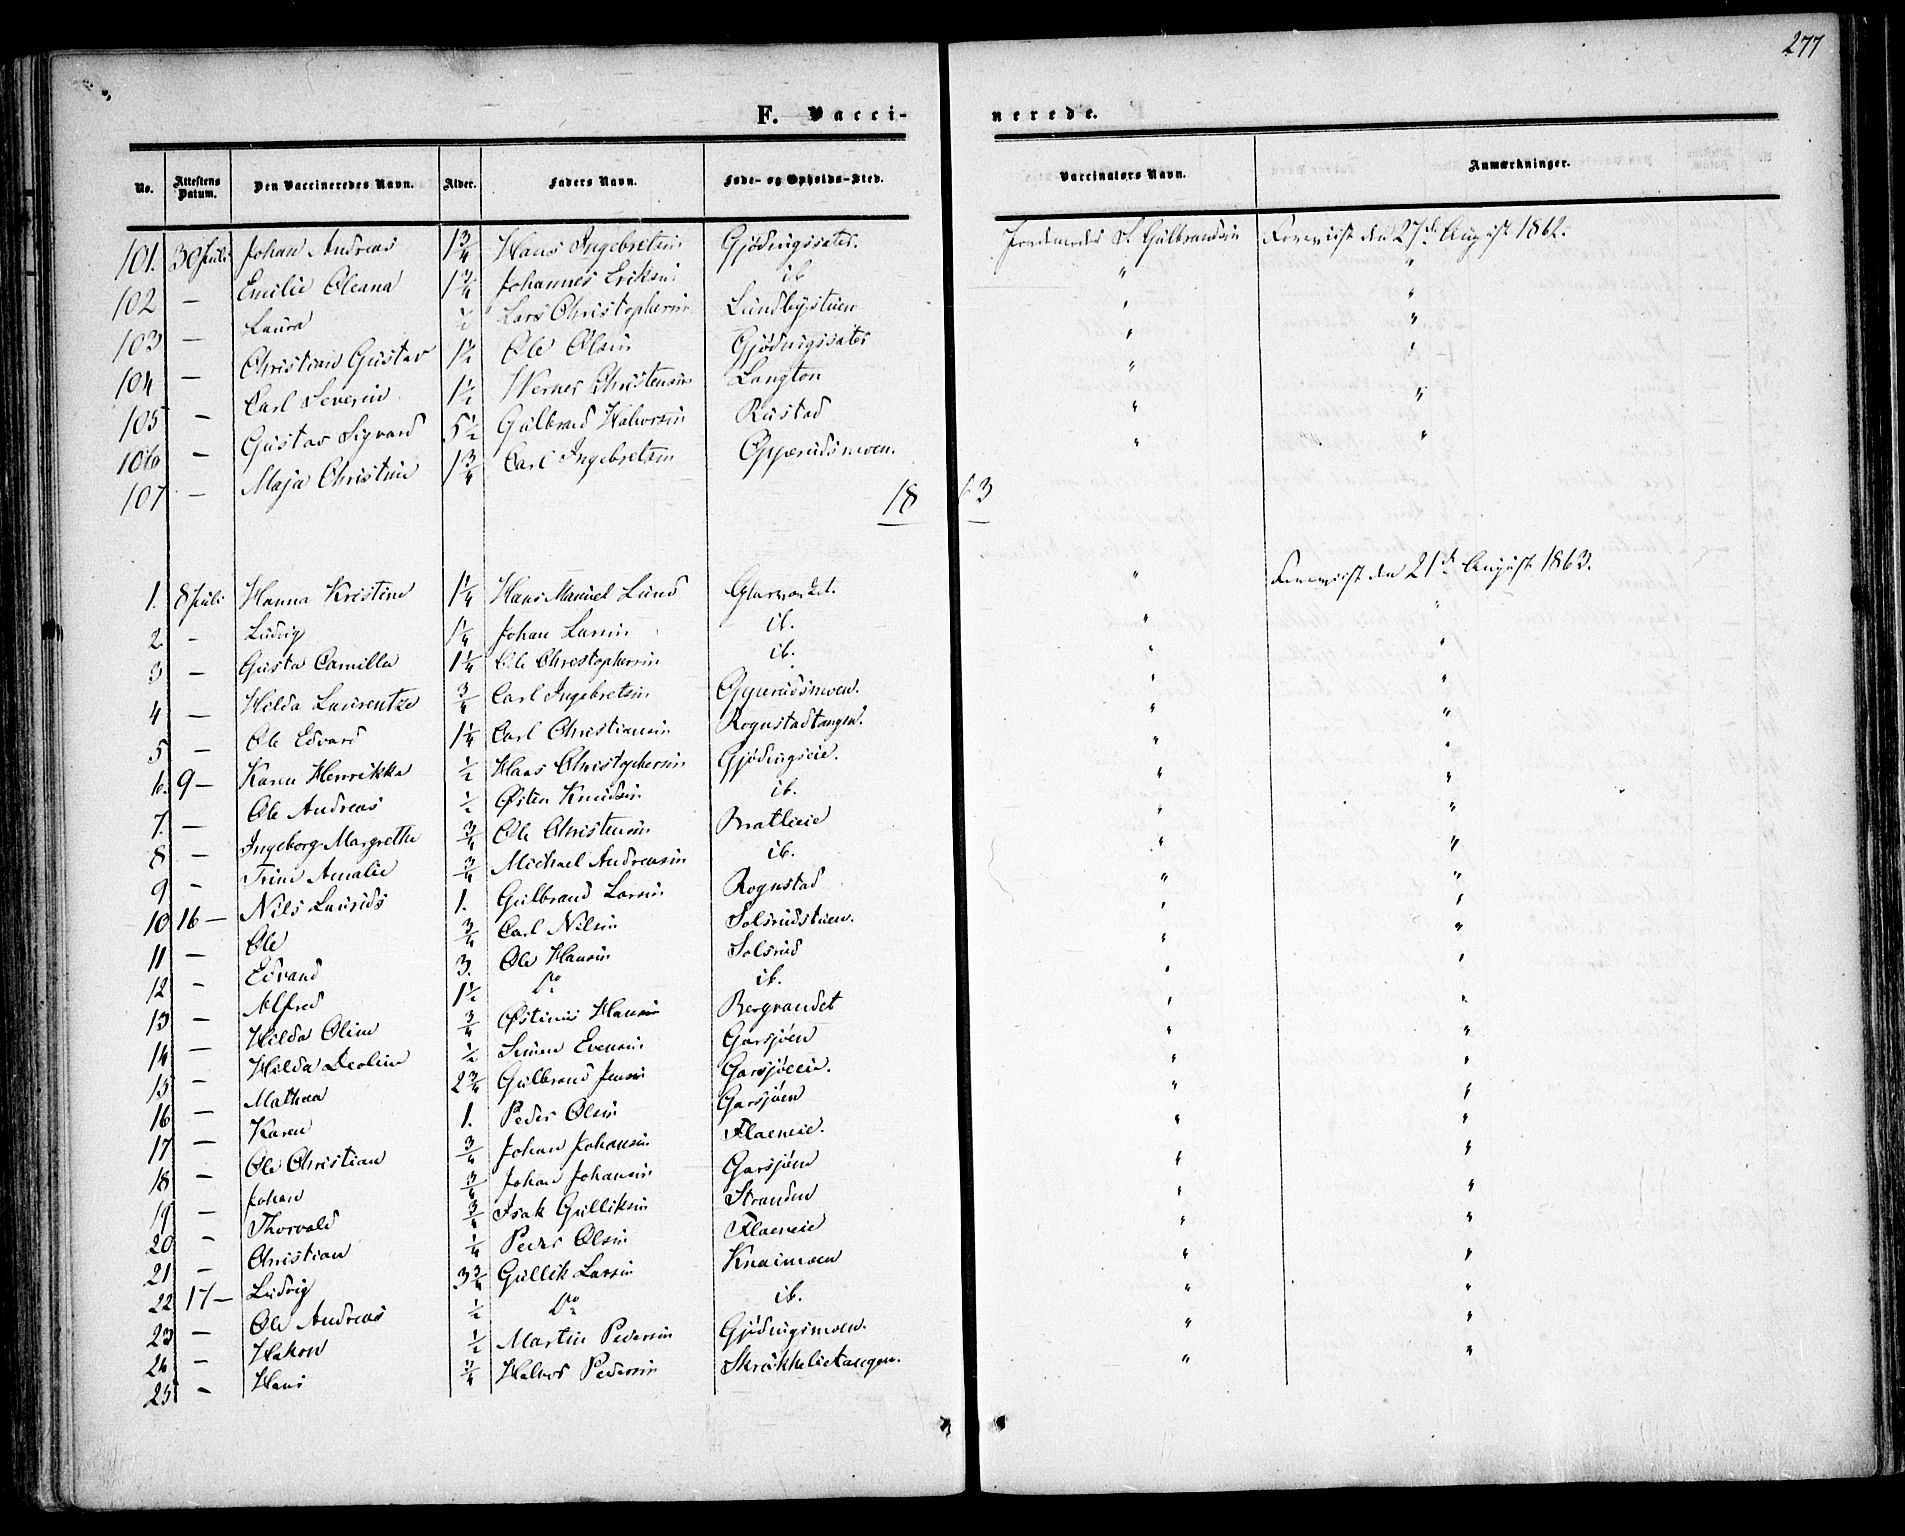 277
F. Vaccinerede.
No. Attestens Datum. Den Vaccineredes Navn. Alder. Faders Navn. Føde- og Opholds-Sted. Vaccinatørs Navn. Anmærkninger.
101. 30 Juli Johan Andreas 1 3/4 Hans Ingebretsen Gjödingssæter. Jordemoder S. Gulbrandsen Foreviist den 27de August 1862.
102 — Emilie Oleana 1 3/4 Johannes Eriksen ib " "
103 — Laura 1/2 Lars Christophersen Lundbystuen " "
104 — Christian Gustav 1 1/2 Ole Olsen Gjödingssæter " "
105 — Carl Severin 1 1/2 Werner Christensen Langton " "
106 — Gustav Sigvard 5 1/2 Gulbrand Halvorsen Rustad " "
107 — Maja Christine 1 3/4 Carl Ingebretsen Opperudsmoen. " "
18 63
1. 8 Juli Hanna Kristine 1 1/4 Hans Manuel Lund Glasværket. " Foreviist den 21de August 1863.
2. — Ludvig 1 1/4 Johan Larsen ib. " "
3 — Gusta Camilla 1 1/4 Ole Christophersen ib. " "
4 — Hilda Laurentze 3/4 Carl Ingebretsen Opperudsmoen. " "
5 — Ole Edvard 1 1/4 Carl Christiansen Rognstadtangen. " "
6. 9 — Karen Henrikka 1/2 Hans Christophersen Gjödingseie. " "
7. — Ole Andreas 1/2 Østen Knudsen ib. " "
8 — Ingeborg Margrethe 3/4 Ole Christensen Bratlieie " "
9 — Trine Amalie 3/4 Michael Andreasen ib. " "
10 16 — Nils Laurids 1. Gulbrand Larsen Rognstad " "
11 — Ole 3/4 Carl Nilsen Solsrudstuen. " "
12 — Edvand 3. Ole Hansen Solsrud " "
13 — Alfred 1 1/2 Do ib. " "
14 — Hilda Oline 3/4 Østinus Hansen Bergvandet " "
15 — Hilda Leoline 1/2 Simen Evensen Garsjöen " "
16 — Mathea 2 3/4 Gulbrand Jensen Garsjöeie. " "
17 — Karen 1. Peder Olsen Garsjöen " "
18 — Ole Christian 3/4 Johan Johansen Flaeneie. " "
19 — Johan 3/4 Johan Johansen Garsjöen " "
20 — Thorvald 3/4 Isak Gulliksen Stranden " "
21 — Christian 1/4 Peder Olsen Flaeneie " "
22 17 — Ludvig 3 3/4 Gullik Larsen Knaimoen " "
23 — Ole Andreas 1/2 Do ib. " "
24 — Hakon 1/2 Martin Pedersen Gjödingsmoen. " "
25 — Hans 3/4 Halvor Pedersen Skrukkelietangen. " "